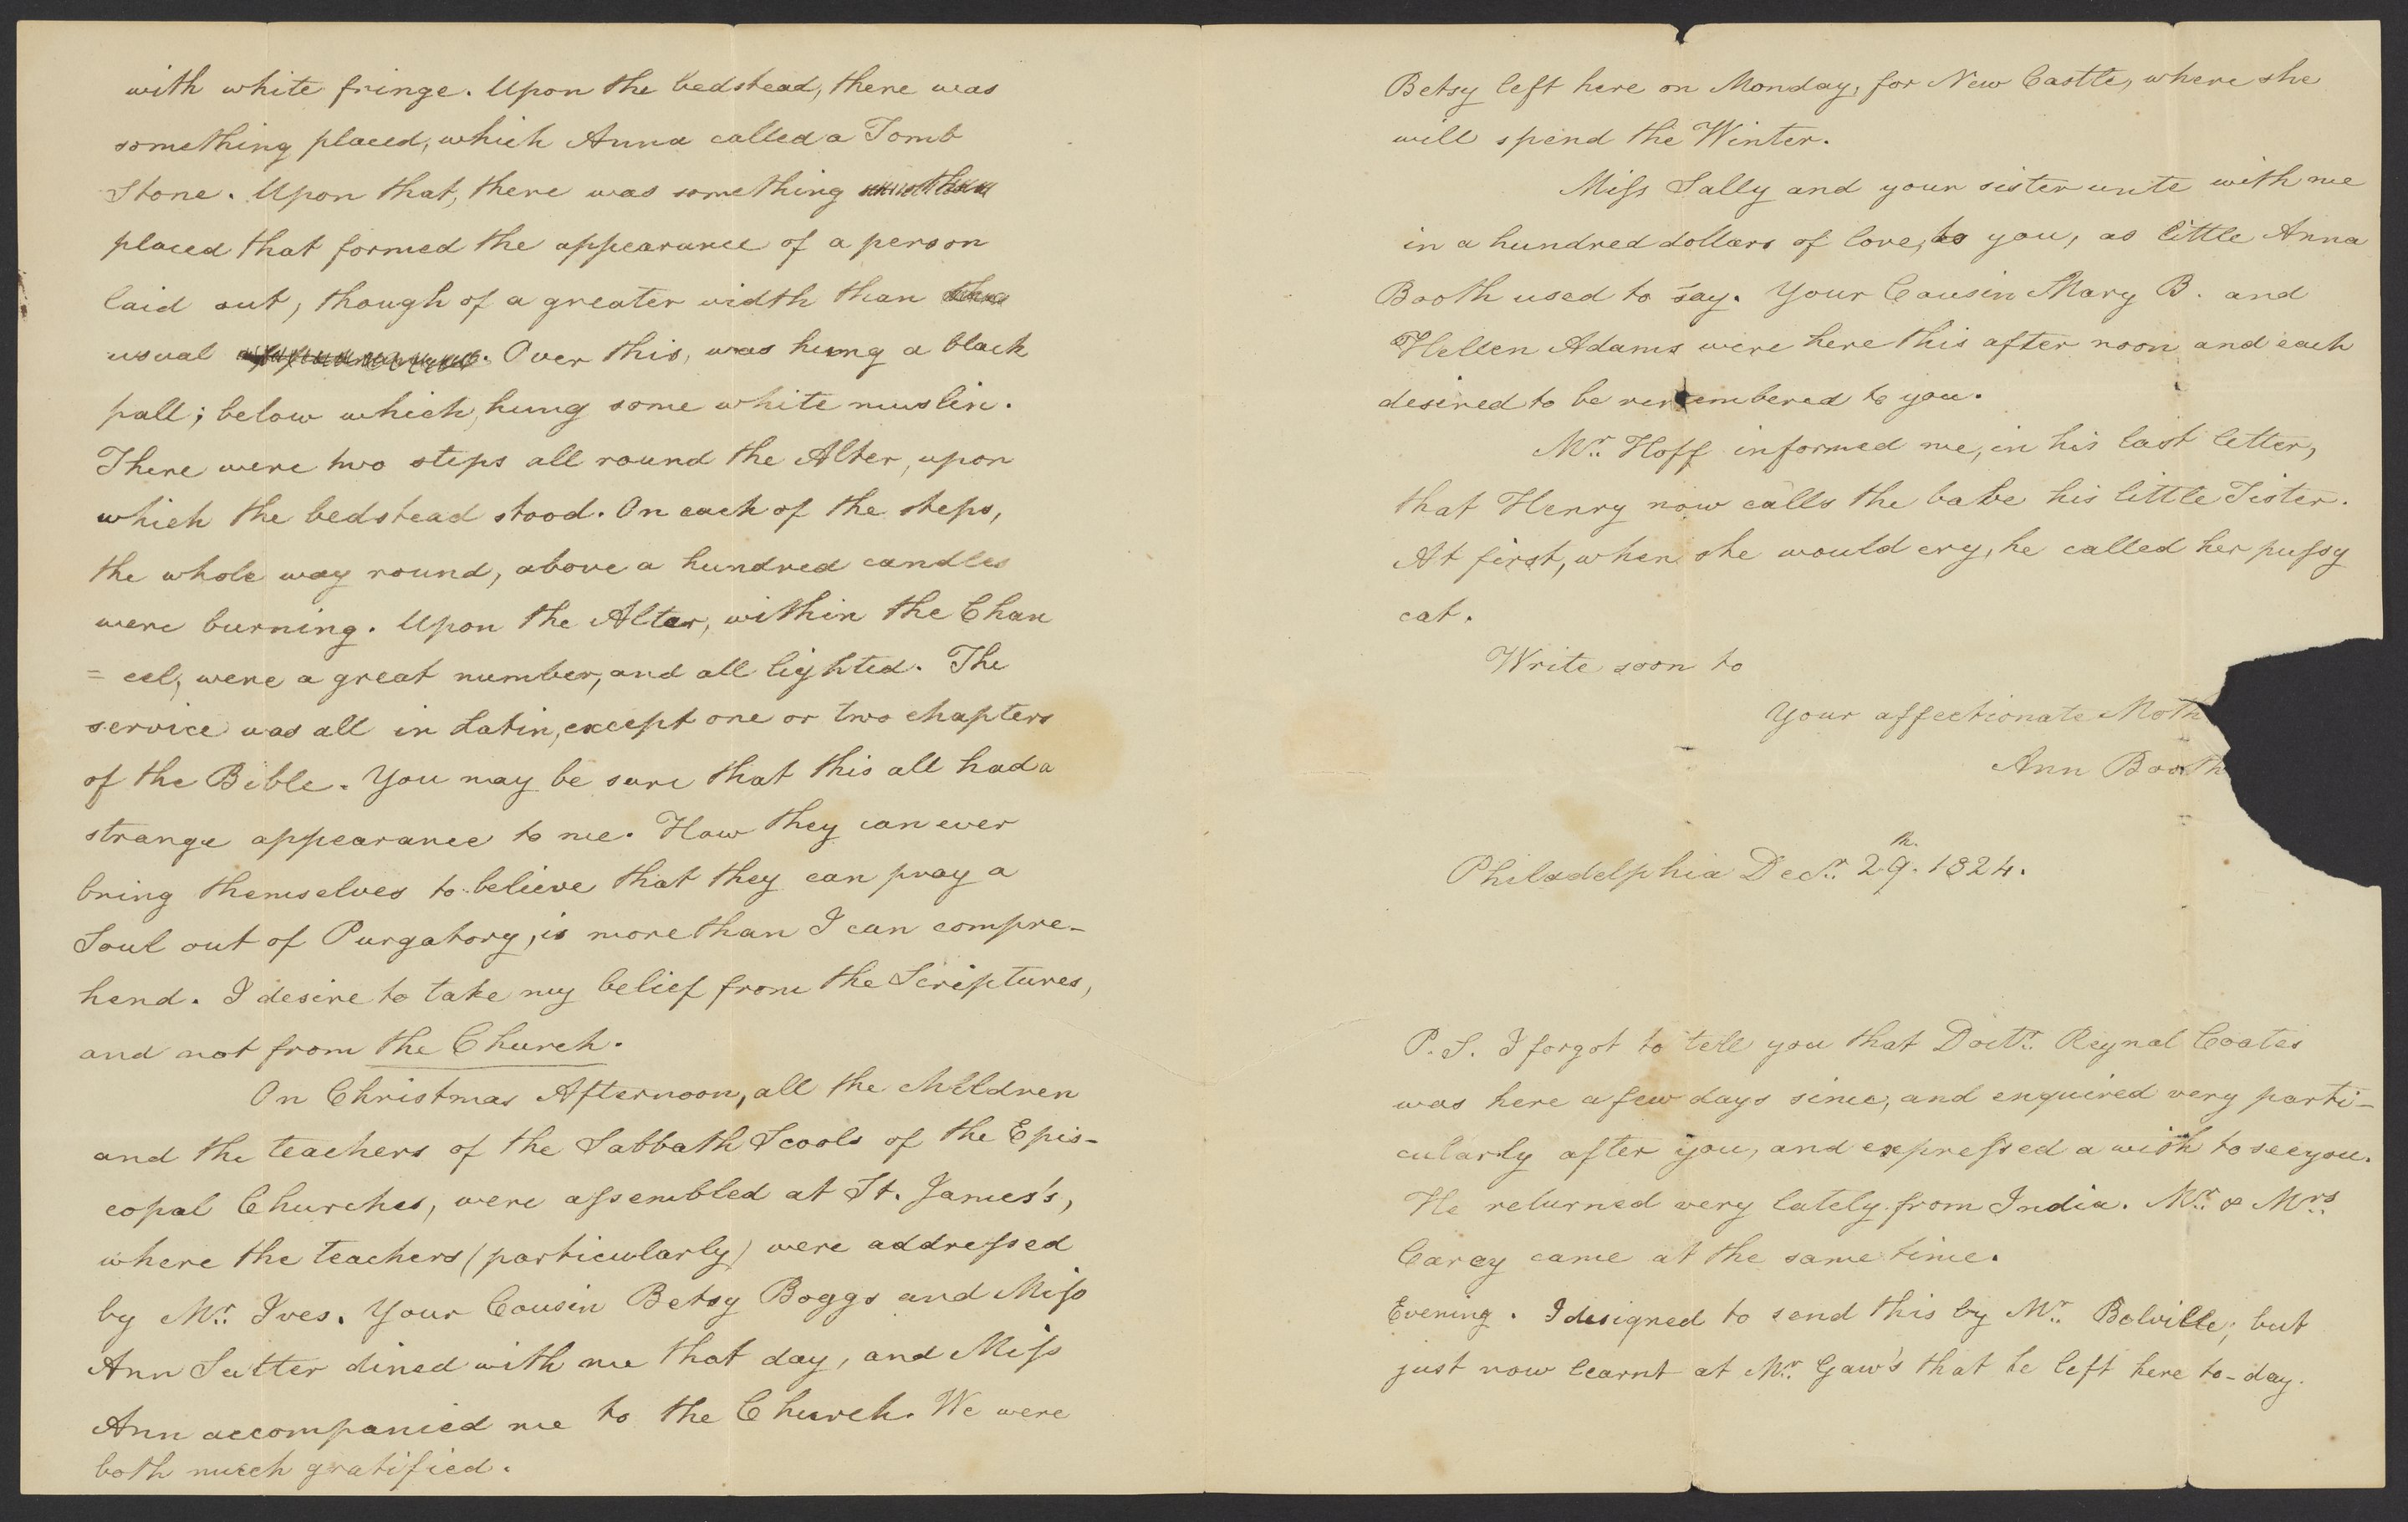 with white fringe. Upon the bedstead, there was
something placed, which Anna called a Tomb
Stone. Upon that, there was something
placed that formed the appearance of a person
laid out, though of a greater width than
usual. Over this, was hung a black
pall; below which, hung some white muslin.
There were two steps all round the Alter, upon
which the bedstead stood. On each of the steps,
the whole way round, above a hundred candles
were burning. Upon the Altar, within the Chan
= cel, were a great number, and all lighted. The
service was all in Latin, except one or two chapters
of the Bible. You may be sure that this all had a
strange appearance to me. How they can ever
bring themselves to believe that they can pray a
Soul out of Purgatory, is more than I can compre-
hend. I desire to take my belief from the Scriptures,
and not from the Church.
On Christmas Afternoon, all the children
and the teachers of the Sabbath Scools of the Epis-
copal Churches, were assembled at St. James's,
where the teachers (particularly) were addressed
by Mr. Ives. Your Cousin Betsy Boggs and Miss
Ann Sutter dined with me that day, and Miss
Ann accompanied me to the Church. We were
both much gratified.
Betsy left here on Monday, for New Castle, where she
will spend the Winter.
Miss Sally and your sister unite with me
in a hundred dollars of love, to you, as little Anna
Booth used to say. Your Cousin Mary B. and
Hellen Adams were here this after noon and each
desired to be remembered to you.
Mr. Hoff informed me, in his last letter,
that Henry now calls the babe his little Sister.
At first, when she would cry, he called her pussy
cat.
Write soon to
Your affectionate Moth
Ann Booth
Philadelphia Decr. 29th. 1824.
P. S. I forgot to tell you that Doctr. Reynal Coates
was here a few days since, and enquired very parti-
cularly after you, and expressed a wish to see you.
He returned very lately from India. Mr. & Mrs.
Carey came at the same time.
Evening. I designed to send this by Mr. Bolville; but
just now learnt at Mr. Gaw's that he left here to-day.